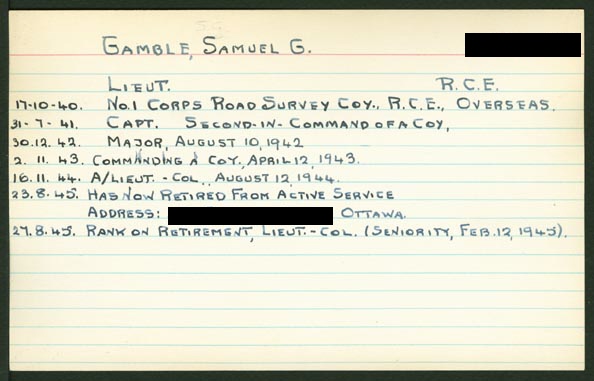 GAMBLE, SAMUEL G.
LIEUT. R.C.E.
17-10-40. NO.1 CORPS ROAD SURVEY COY., R.C.E., OVERSEAS.
31-7-41. CAPT. SECOND-IN-COMMAND OF A COY,
30.12.42. MAJOR, AUGUST 10, 1942
2.11.43. COMMANDING A COY, APRIL 12, 1943.
16.11.44. A/LIEUT.-COL., AUGUST 12, 1944.
23.8.45. HAS NOW RETIRED FROM ACTIVE SERVICE
ADDRESS: OTTAWA.
27.8.45. RANK ON RETIREMENT, LIEUT.-COL. (SENIORITY, FEB. 12, 1945).